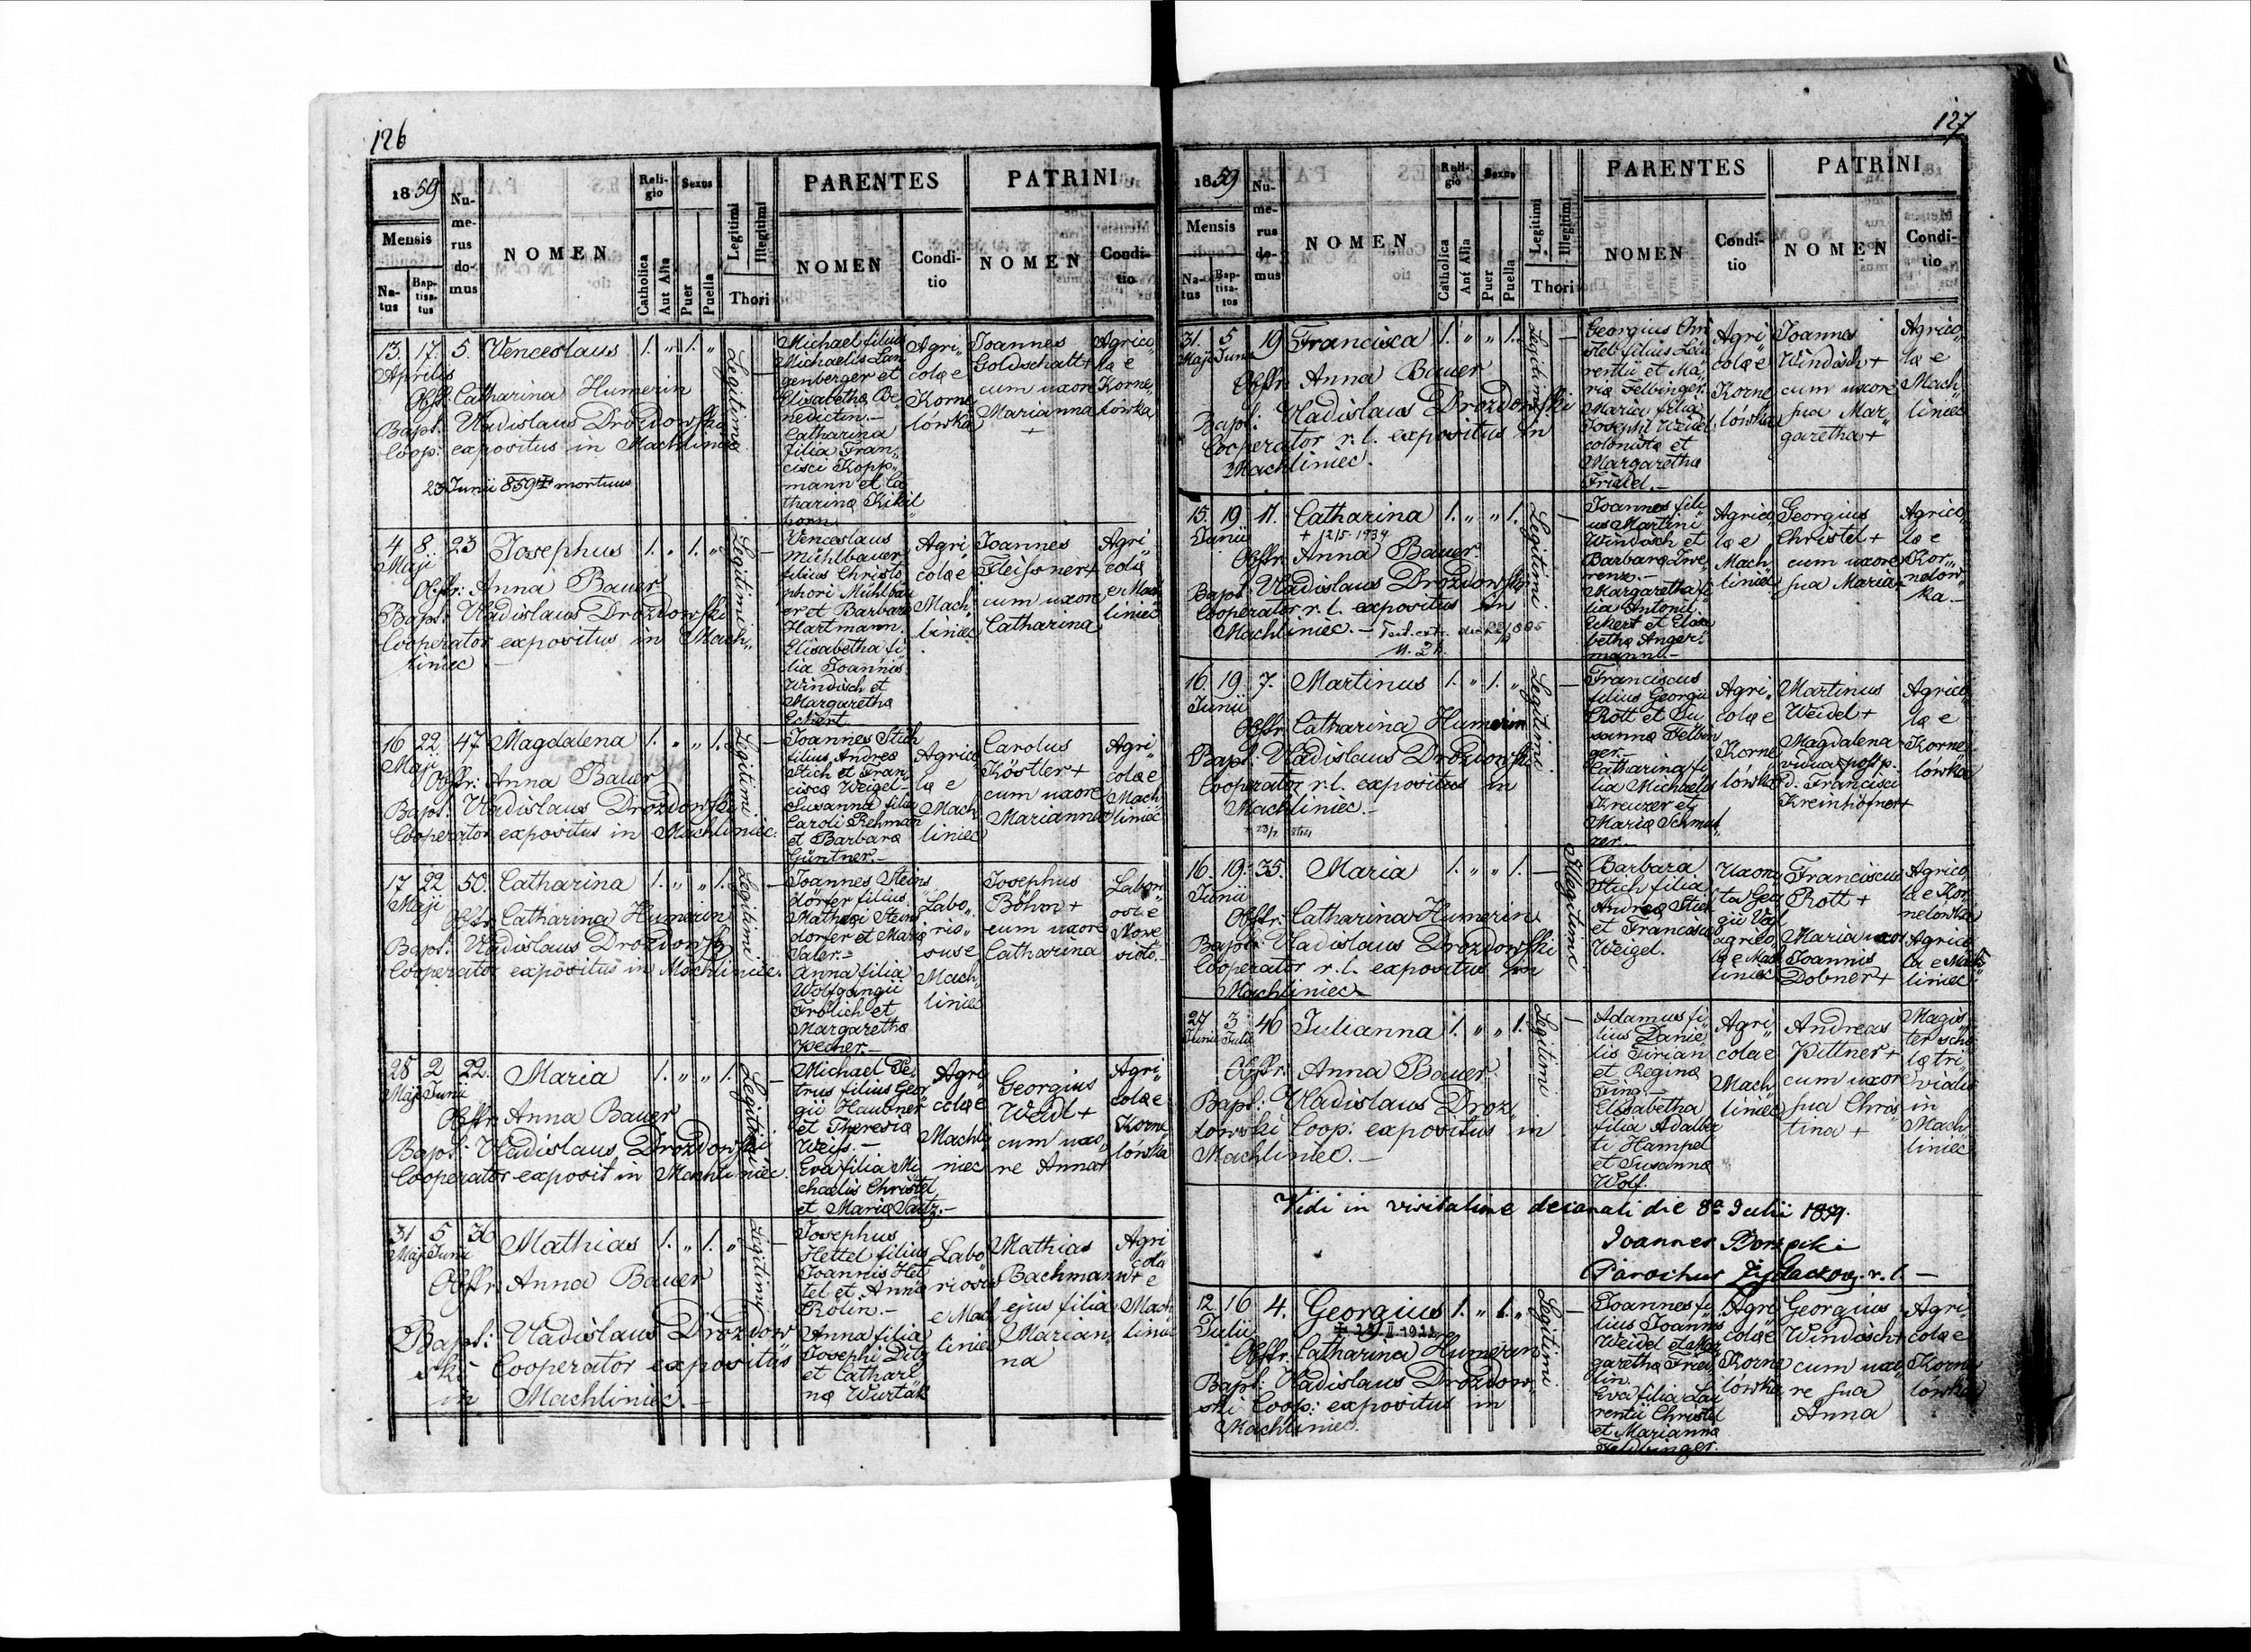 126
18 59
Mensis
Na-
tus
Bap-
tisa-
tus
Nu-
me-
rus
do-
mus
NOMEN
Reli-
gio
Catholica
Aut Alia
Sexus
Puer
Puella
Legitimi
Illegitimi
Thori
PARENTES
NOMEN
Condi-
tio
PATRINI
NOMEN
Condi-
tio
13. 17. 5. Venceslaus 1. " 1. "
Aprilis
Obstr. Catharina Humerin
Bapt: Vladislaus Drozdowski
Coop: expositus in Machliniec
23 Junii 859 mortuus
Legitimi
Michael filius
Michaelis Lan
genberger et
Elisabetha Be
nedictin.-
Catharina
filia Fran„
cisci Kopp„
mann et Ca
tharina
Agri„
colae
Korne
lówka
Joannes
Goldschalt+
cum uxore
Marianna
+
Agrico„
lae
Korne„
lówka
4 8. 23 Josephus 1. " 1. "
Maji
Obstr: Anna Bauer
Bapt: Vladislaus Drozdowski
Cooperator expositus in Mach„
liniec -
Legitimi
Venceslaus
Mühlbauer
filius Christo
phori Mühlbau
er et Barbara
Hartmann.
Elisabetha fi
lia Joannis
Windisch et
Margaretha
Eckert
Agri
colae
Mach„
liniec
Joannes
Fleissner+
cum uxore
Catharina
Agri
colae
Mach
liniec
16 22. 47 Magdalena 1. " " 1.
Maji
Obstr: Anna Bauer
Bapt: Vladislaus Drozdowski
Cooperator expositus in Machliniec.
Legitimi
Joannes Stich
filius Andrea
Stich et Fran
cisca Weigel-
Susanna filia
Caroli Rehman
et Barbara
Güntner.-
Agrico
lae
Mach
liniec
Carolus
Köstler+
cum uxore
Marianna
Agri„
colae
Mach
liniec
17 22 50. Catharina 1. " " 1.
Maji
Obstr. Catharina Humerin
Bapt: Vladislaus Drozdowski
Cooperator expositus in Machliniec.
Legitimi
Joannes Steins
dörfer filius
Mathaei Steins
dörfer et Maria
Taler.-
Anna filia
Wolfgangii
Frölich et
Margaretha
Labo„
rio„
sus e
Mach„
liniec
Josephus
Böhm+
cum uxore
Catharina
28 2 22. Maria 1. " " 1.
Maji Junii
Obstr. Anna Bauer
Bapt: Vladislaus Drozdowski
Cooperator exposit in Machliniec.
Legitimi
Michael Pe„
trus filius Geor
gii Haubner
et Theresia
Weiss.-
Eva filia Mi
chaelis Christel
et Maria
Agri
colae
Machli
niec
Georgius
Weidl+
cum uxo„
re Anna+
Agri„
colae
Korne
lówka
31 5 36 Mathias 1. " 1. "
Maji Junii
Obstr. Anna Bauer
Bapt: Vladislaus Drozdow
ski Cooperator expositus
in Machliniec.-
Legitimi
Josephus
Hettel filius
Joannis Het
tel et Anna
Rölin.-
Anna filia
Josephi
et Cathari
na
Labo
riosus
e Mach
liniec
Mathias
Bachmann+
ejus filia
Marian„
na
Agri
cola
e
Mach
liniec
127
18 59
Mensis
Na-
tus
Bap-
tisa-
tus
Nu-
me-
rus
do-
mus
NOMEN
Reli-
gio
Catholica
Aut Alia
Sexus
Puer
Puella
Legitimi
Illegitimi
Thori
PARENTES
NOMEN
Condi-
tio
PATRINI
NOMEN
Condi-
tio
31. 5 19 Francisca 1. " " 1.
Maji Junii
Obstr. Anna Bauer
Bapt: Vladislaus Drozdowski
Cooperator r. l. expositus in
Machliniec.
Legitimi
Georgius Chri
stel filius Lau
rentii et Ma„
ria Felbinger.
Maria filia
Josephi Weidel
colonista et
Margaretha
Friedel.-
Agri
colae
Korne
lówka
Joannes
Windisch+
cum uxore
sua Mar„
garetha+
Agrico„
lae
Mach„
liniec
15. 19 11. Catharina 1. " " 1.
Junii
Obstr Anna Bauer
Bapt: Vladislaus Drozdowski
Cooperator r. l. expositus in
Machliniec.-
Legitimi
Joannes fili
us Martini
Windisch et
Barbara
Margaretha fi
lia Antonii
Eckert et Elisa
betha Anger„
mann.-
Agrico
lae
Mach„
liniec
Georgius
Christel+
cum uxore
sua Maria
Agrico„
lae
Kor„
nelow„
ka-
16. 19 7. Martinus 1. " 1. "
Junii
Obstr. Catharina Humerin
Bapt: Vladislaus Drozdowski
Cooperator r. l. expositus in
Machliniec.-
Legitimi
Franciscus
filius Georgii
Rott et Su
sanna Felbin
ger.-
Catharina fi
lia Michaelis
Kreuzer et
Maria
Agri„
colae
Korne
lówka
Martinus
Weidel+
Magdalena
vidua post p.
d. Francisci
Kreinhöfner+
Agrico
lae
Korne„
lówka
16. 19. 35. Maria 1. " " 1.
Junii
Obstr. Catharina Humerin
Bapt: Vladislaus Drozdowski
Cooperator r. l. expositus in
Machliniec
Illegitimi
Barbara
Stich filia
Andrea Stich
et Francisca
Weigel.
Franciscus
Rott+
Maria uxor
Joannis
Dobner+
Agrico
lae Kor
nelówka
Agrico
lae Mach
liniec
27 3 46 Julianna 1. " " 1.
Junii Julii
Obstr. Anna Bauer
Bapt: Vladislaus Droz„
dowski Coop: expositus in
Machliniec.-
Legitimi
Adamus fi
lius Danie
lis Tirian
et Regina
Elisabetha
filia Adalber
ti Hampel
et Susanna
Wolf.
Agri„
colae
Mach
liniec
Andreas
Pittner+
cum uxore
sua Chris
tina+
Magis
ter scho
lae tri
vialis
in
Mach
liniec
Vidi in visitatione decanali die 8a Julii 1859.
Joannes
Parochus r. l.-
12. 16 4. Georgius 1. " 1. "
Julii
Obstr. Catharina Humerin
Bapt: Vladislaus Drozdow„
ski Coop: expositus in
Machliniec.
Legitimi
Joannes fi
lius Joannis
Weidel et Mar
garetha Fried
lin.
Eva filia Lau
rentii Christel
et Marianna
Feldbinger.
Agri
colae
Korne
lówka
Georgius
Windisch+
cum uxo
re sua
Anna
Agri„
colae
Korne
lówka